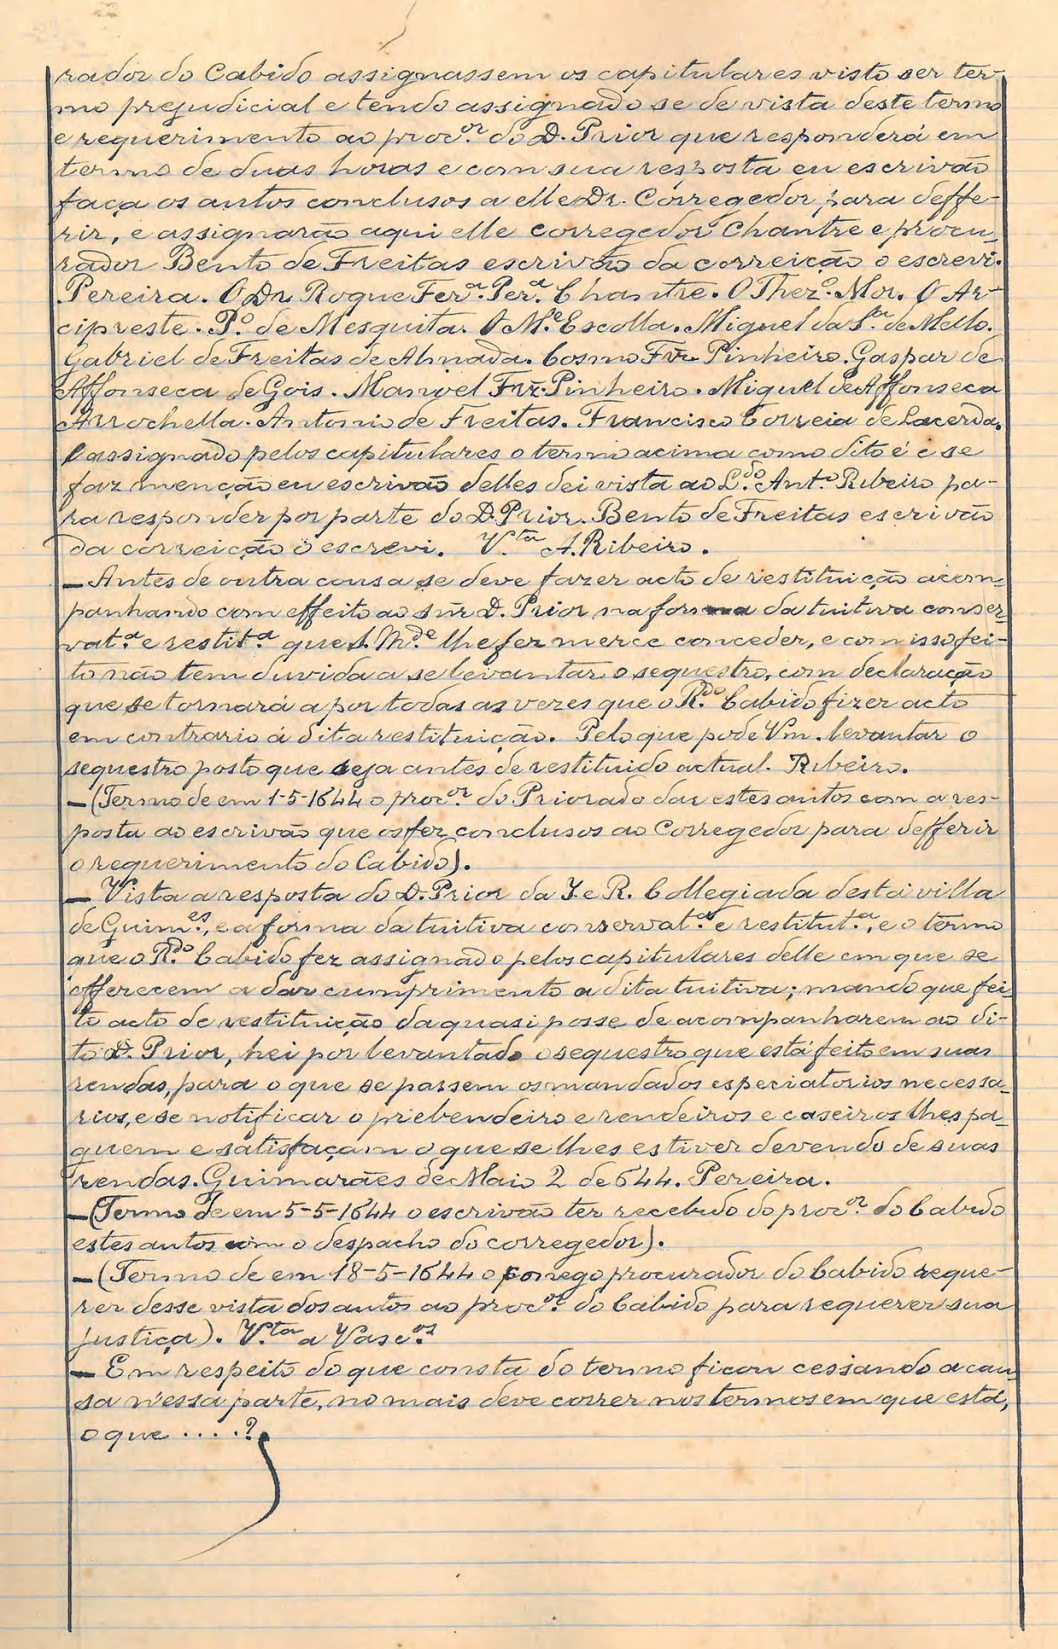 rador do Cabido assignassem os capitulares visto ser ter-
mo prejudicial e tendo assignado se de vista deste termo
e requerimento ao proc.or do D. Prior que responderá em
termo de duas horas e com sua resposta eu escrivão
faça os autos conclusos a elle Dr. Corregedor para deffe-
rir, e assignarão aqui elle corregedor Chantre e procu-
rador Bento de Freitas escrivão da correição o escrevi.
Pereira. O Dr. Roque Fer.a Per.a Chantre. O Thez.o Mor. O Ar-
cipreste. P.o de Mesquita. O M.e Escolla. Miguel da S.a de Mello.
Gabriel de Freitas de Almada. Cosmo Frz Pinheiro. Gaspar de
Affonseca de Gois. Manoel Frz Pinheiro. Miguel de Affonseca
Arrochella. Antonio de Freitas. Francisco Correia de Lacerda.
E assignado pelos capitulares o termo acima como dito é e se
faz menção eu escrivão delles dei vista ao L.do Ant.o Ribeiro pa-
ra responder por parte do D. Prior. Bento de Freitas escrivão
da correição o escrevi. V.ta A. Ribeiro.
— Antes de outra cousa se deve fazer acto de restituição acom-
panhando com effeito ao snr D. Prior na forma da tuitiva conser-
vat.a e restit.a que S. Mg.de lhe fez merce conceder, e com isso fei-
to não tem duvida a se levantar o sequestro, com declaração
que se tornará a por todas as vezes que o R.do Cabido fizer acto
em contrario á dita restituição. Pelo que pode Vm. levantar o
sequestro posto que seja antes de restituido actual. Ribeiro.
— (Termo de em 1-5-1644 o proc.or do Priorado dar estes autos com a res-
posta ao escrivão que os fez conclusos ao Corregedor para defferir
o requerimento do Cabido).
— Vista a resposta do D. Prior da I. e R. Collegiada desta villa
de Guim.es, e a forma da tuitiva conservat.a e restitut.a, e o termo
que o R.do Cabido fez assignado pelos capitulares delle em que se
offerecem a dar cumprimento a dita tuitiva; mando que fei-
to acto de restituição da quasi posse de acompanharem ao di-
to D. Prior, hei por levantado o sequestro que está feito em suas
rendas, para o que se passem os mandados especiatorios necessa-
rios, e se notificar o priebendeiro e rendeiros e caseiros lhes pa-
guem e satisfaçam o que se lhes estiver devendo de suas
rendas. Guimarães de Maio 2 de 644. Pereira.
— (Termo de em 5-5-1644 o escrivão ter recebido do proc.or do Cabido
estes autos com o despacho do corregedor).
— (Termo de em 18-5-1644 o conego procurador do Cabido reque-
rer desse vista dos autos ao proc.or do Cabido para requerer sua
justiça). V.ta a Vasc.os
— Em respeito do que consta do termo ficou cessando a cau-
sa n'essa parte, no mais deve correr nos termos em que está,
o que ....?